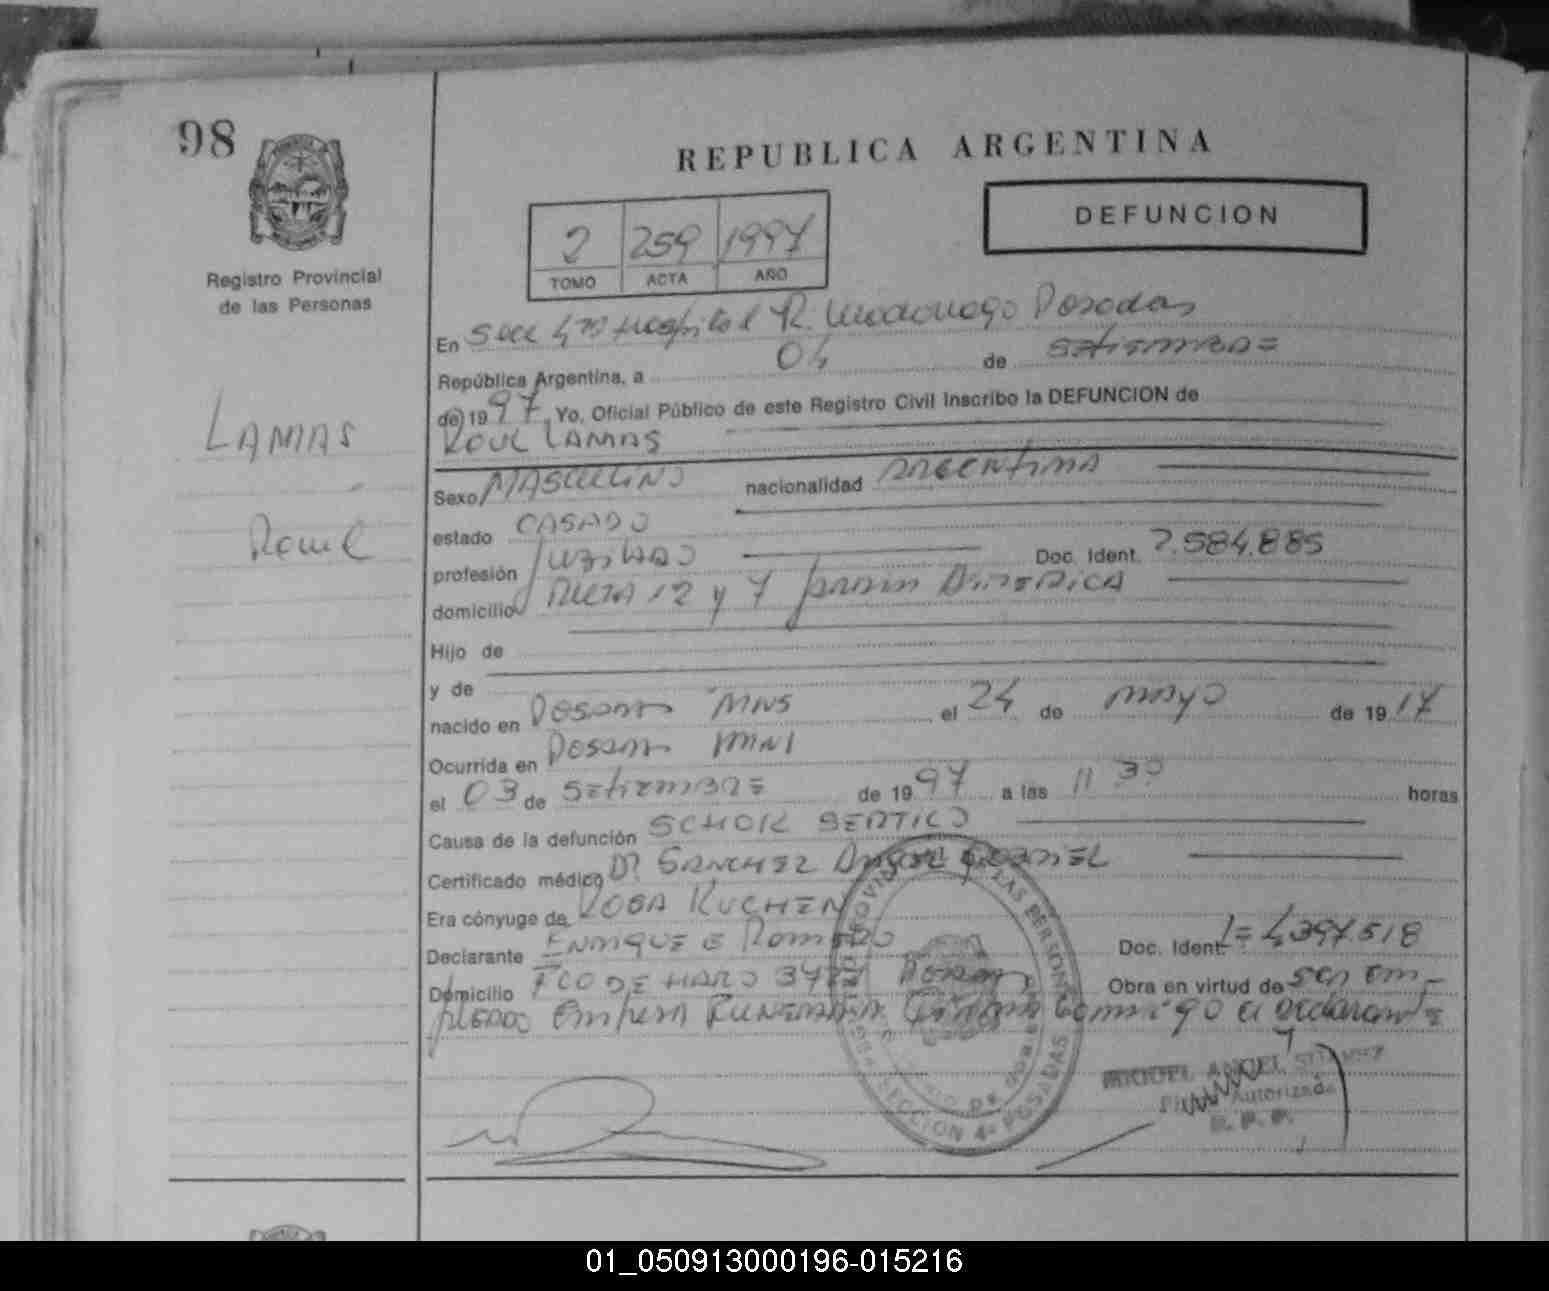 98
REPUBLICA ARGENTINA
DEFUNCION
2 259 1997
TOMO ACTA AÑO
Registro Provincial
de las Personas
En Secc 4ta Hospital R. Madariaga Posadas
República Argentina, a 04 de SETIEMBRE
de 1997. Yo, Oficial Público de este Registro Civil Inscribo la DEFUNCION de
LAMAS
Raul
RAUL LAMAS
Sexo MASCULINO nacionalidad ARGENTINA
estado CASADO
profesión JUBILADO Doc. Ident. 7.584.885
domicilio RUTA 12 y 7 AMERICA
Hijo de
y de
nacido en POSADAS MNS el 24 de MAYO de 1917
Ocurrida en POSADAS MNI
el 03 de SETIEMBRE de 1997 a las 11 30 horas
Causa de la defunción SCHOK SEPTICO
Certificado médico Dr SANCHEZ
Era cónyuge de ROSA KUCHEN
Declarante ENRIQUE E ROMERO Doc. Ident. 4.397.518
Domicilio FCO DE HARO POSADAS Obra en virtud de SER EM-
PLEADO EMPRESA FUNERARIA FIRMA Conmigo el declarante
LAS PERSONAS
SECCION 4a POSADAS
MIGUEL ANGEL
Autorizada
R. P. P.
01_050913000196-015216